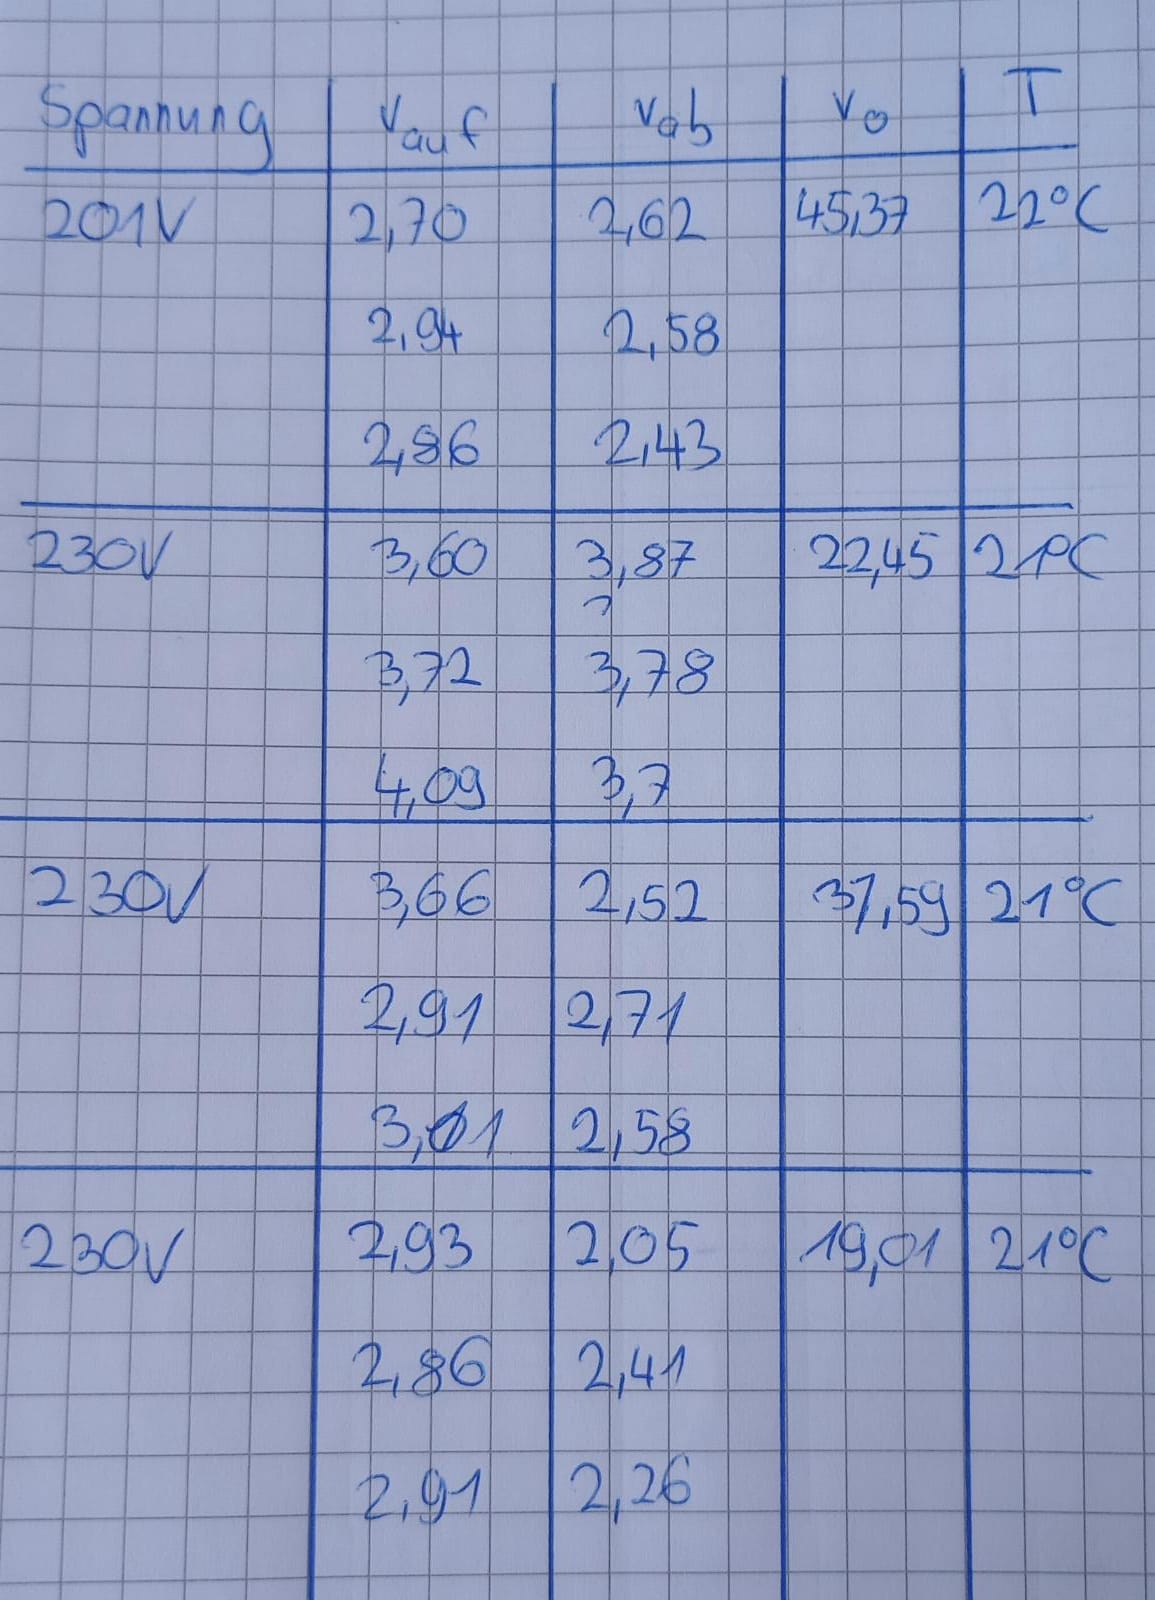 Spannung v_auf v_ab v_0 T
201V 2,70 2,62 45,37 22°C
2,94 2,58
2,86 2,43
230V 3,60 3,87 22,45 21°C
?
3,72 3,78
4,09 3,7
230V 3,66 2,52 37,59 21°C
2,91 2,71
3,01 2,58
230V 2,93 2,05 19,01 21°C
2,86 2,41
2,91 2,26